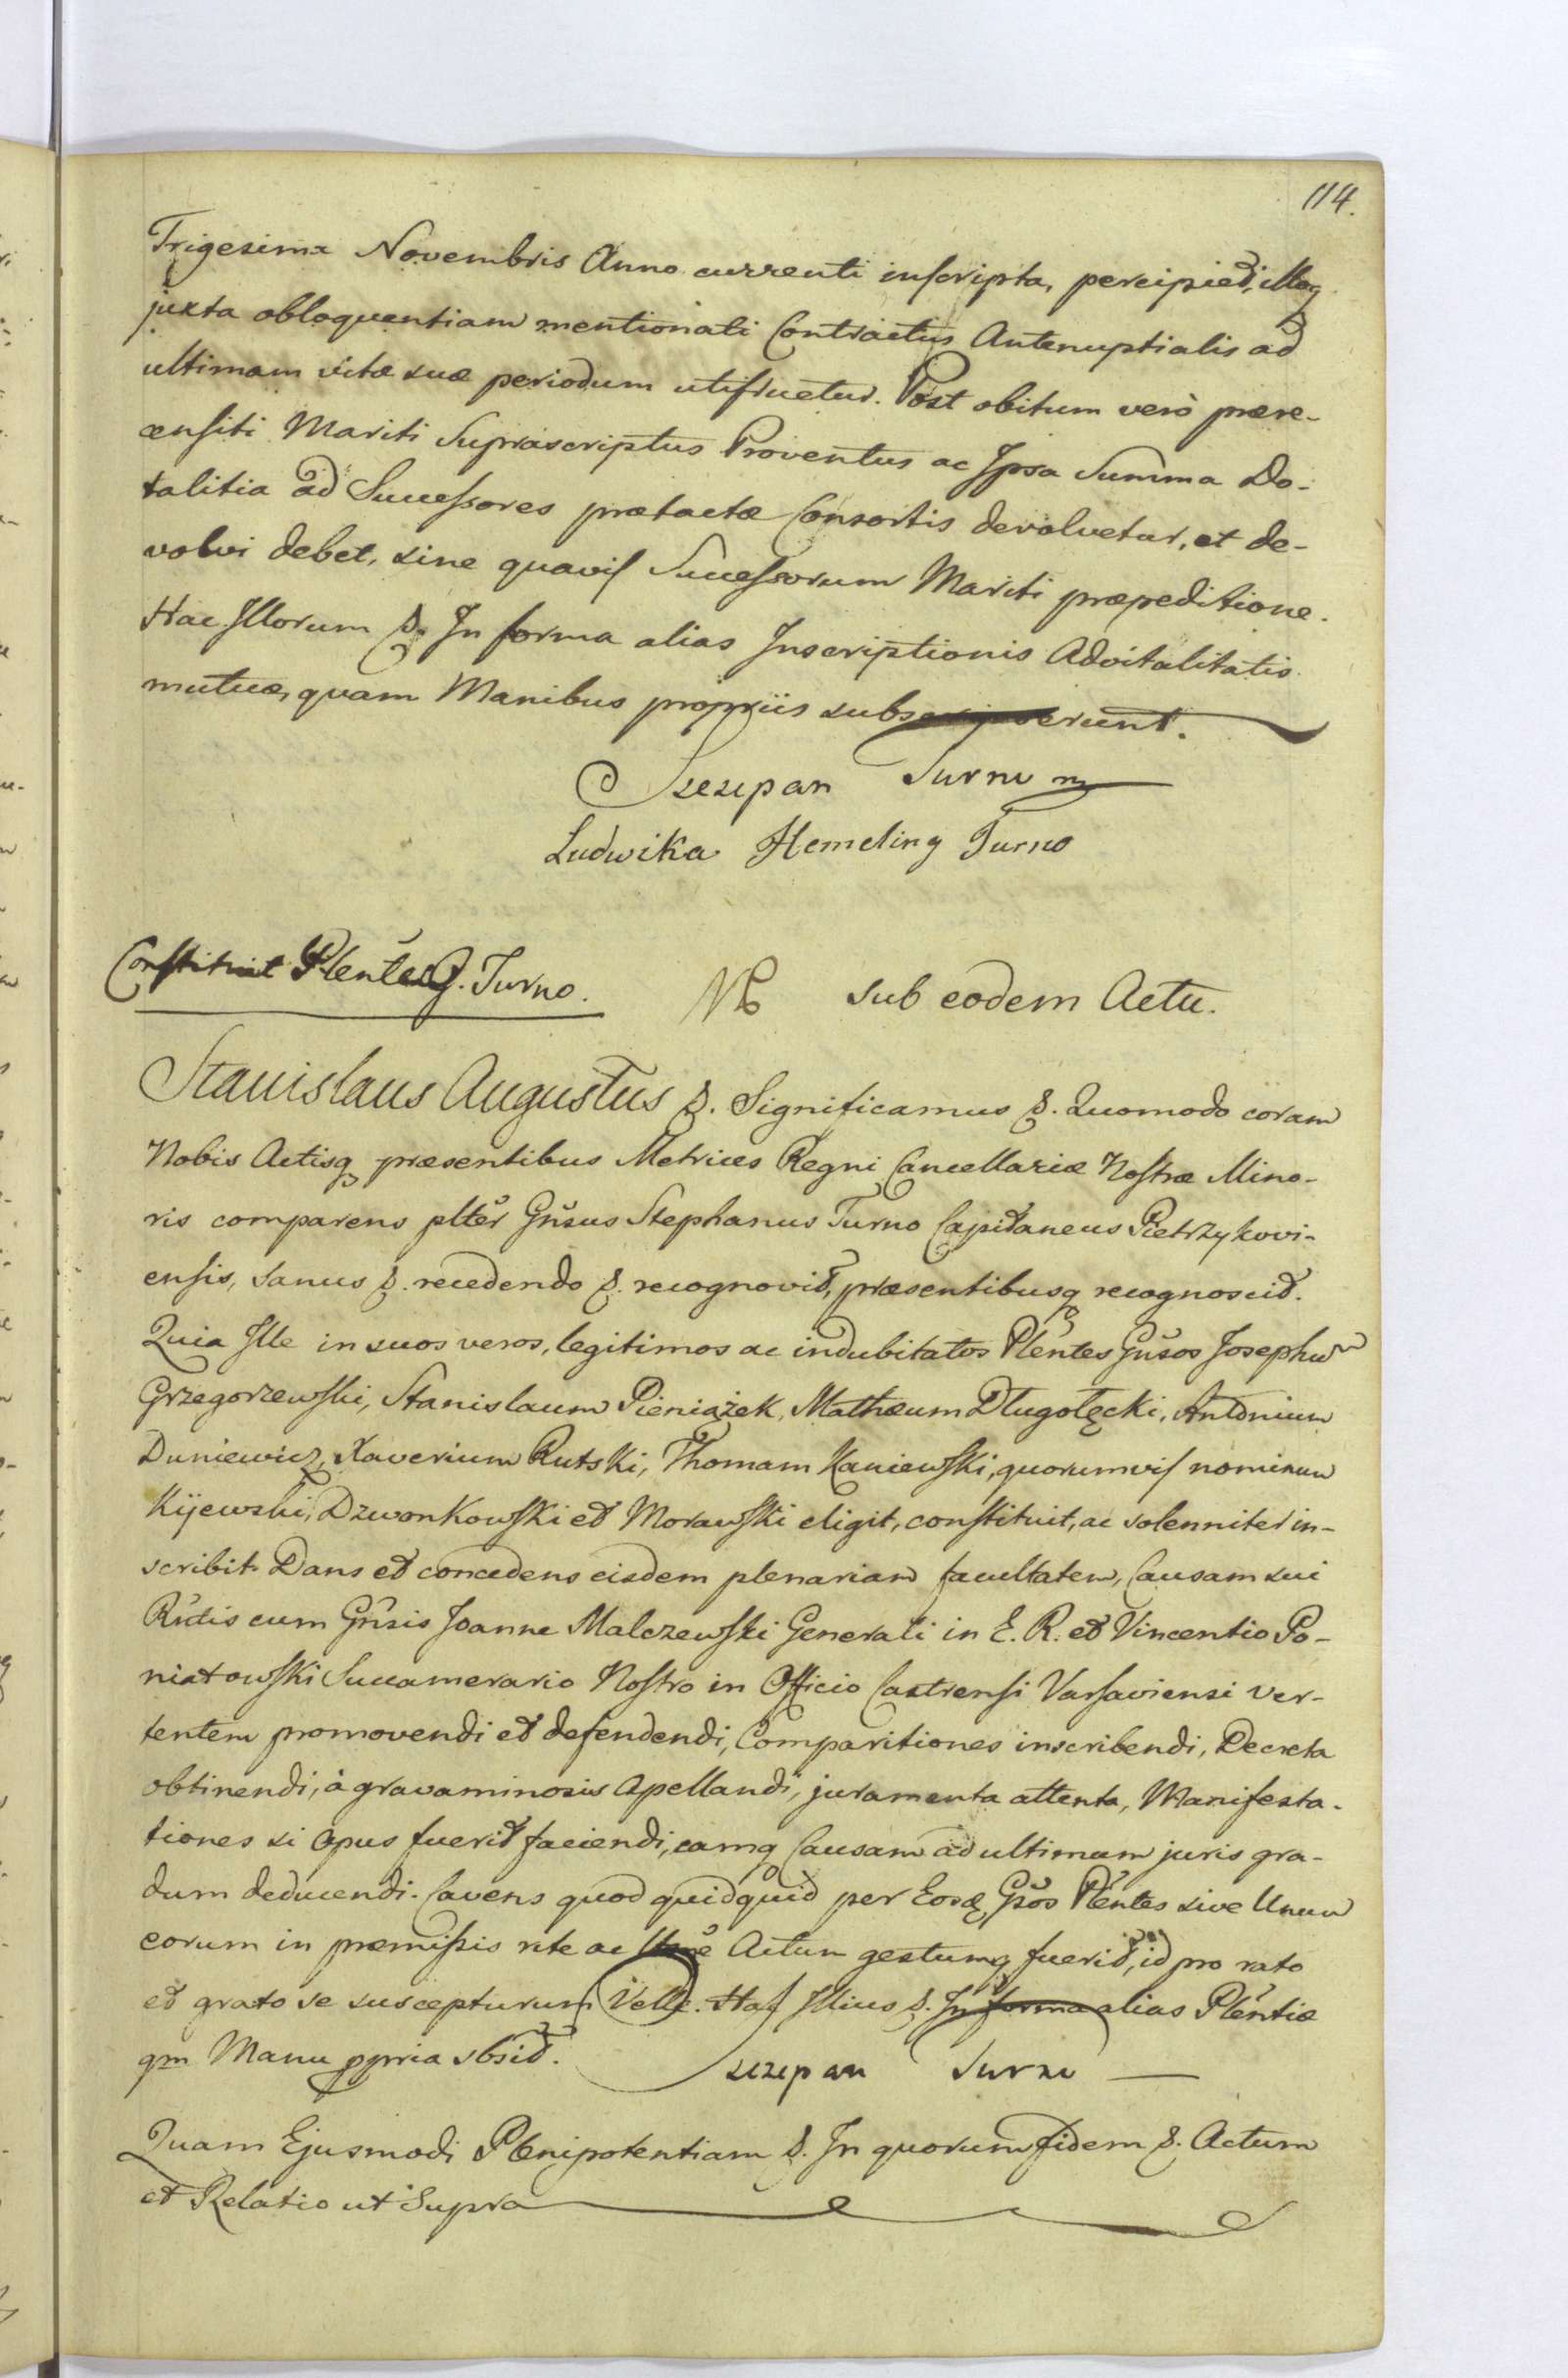 114.
Trigesima Novembris Anno currenti inscripta, percipiet, illoq
juxta obloquentiam mentionati Contractus Antenuptialis ad
ultimam vitæ suæ periodum utifruetur. Post obitum verò prære-
censiti Mariti Suprascriptus Proventus ac Ipsa Summa Do-
talitia ad Successores prætactæ Consortis devolvetur, et de-
volvi debet, sine quavis Successorum Mariti præpeditione.
Hac Illorum &. In forma alias Inscriptionis Advitalitatis
mutuæ, quam Manibus propriis subscripserunt.
Szczepan Turno
Ludwika Hemeling Turno
Constituit Plentes G. Turno.
sub eodem Actu.
Stanislaus Augustus &. Significamus &. Quomodo coram
Nobis Actisq præsentibus Metrices Regni Cancellariæ Nostræ Mino-
ris comparens plter Gnsus Stephanus Turno Capitaneus Pietrzykovi-
ensis, sanus &. recedendo &. recognovit, præsentibusq recognoscit.
Quia Ille in suos veros, legitimos ac indubitatos Plentes Gnsos Josephum
Grzegorzewski, Stanislaum Pieniążek, Mathæum Długołęcki, Antonium
Duniewicz, Xaverium Rutski, Thomam Kaniewski, quorumvis nominum
Kijewski, Dzwonkowski et Morawski eligit, constituit, ac solenniter in-
scribit. Dans et concedens eisdem plenariam facultatem, Causam sui
Rndis cum Gnsis Joanne Malczewski Generali in E. R. et Vincentio Po-
niatowski Succamerario Nostro in Officio Castrensi Varsaviensi ver-
tentem promovendi et defendendi, Comparitiones inscribendi, Decreta
obtinendi, à gravaminosis Apellandi, juramenta attenta, Manifesta-
tiones si opus fuerit faciendi, eamq Causam ad ultimum juris gra-
dum deducendi. Cavens quod quidquid per Eosd Gsos Plentes sive Unum
eorum in præmissis rite ac Actum gestumq fuerit, id pro rato
et grato se suscepturum Velle. Hac Illius &. In forma alias Plentiæ
qm Manu ppria sbsit.
Szczepan Turno
Quam Ejusmodi Plenipotentiam &. In quorum fidem &. Actum
et Relatio ut Supra